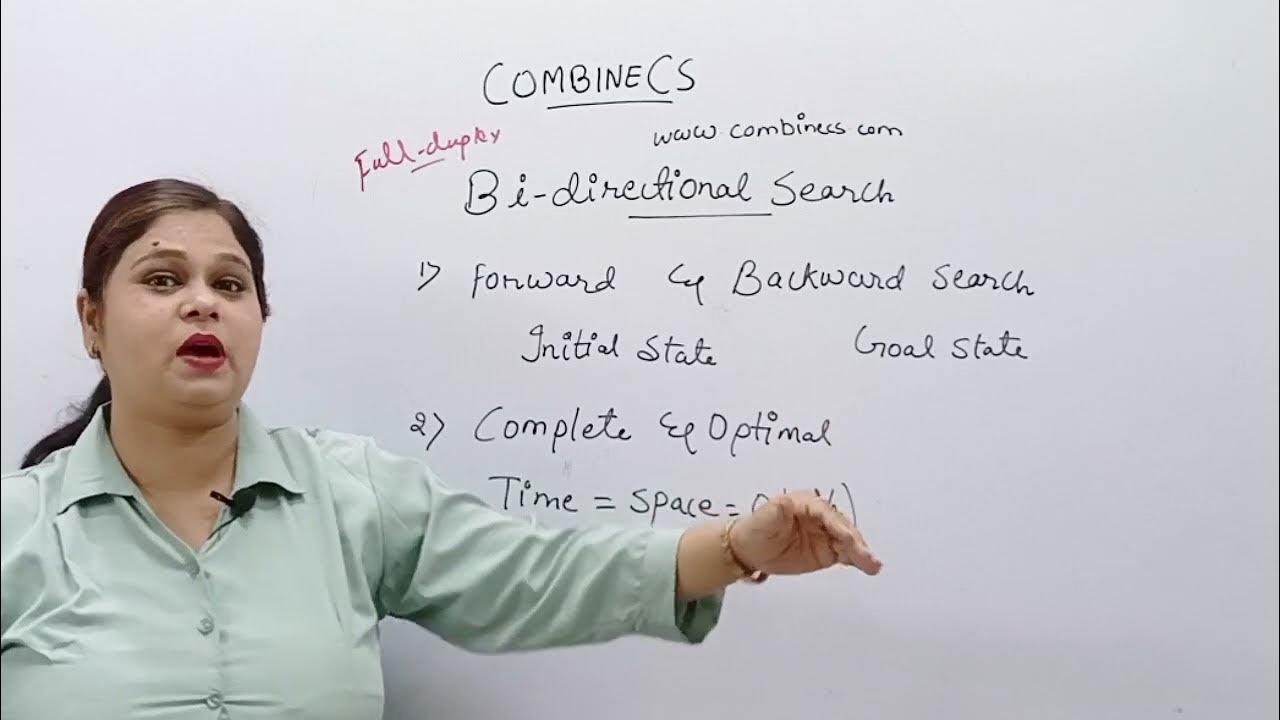 COMBINECS
www.combinecs com
Full-duplex
Bi-directional Search
1) Forward & Backward Search
Initial State Goal State
2) Complete & Optimal
Time = Space = O(